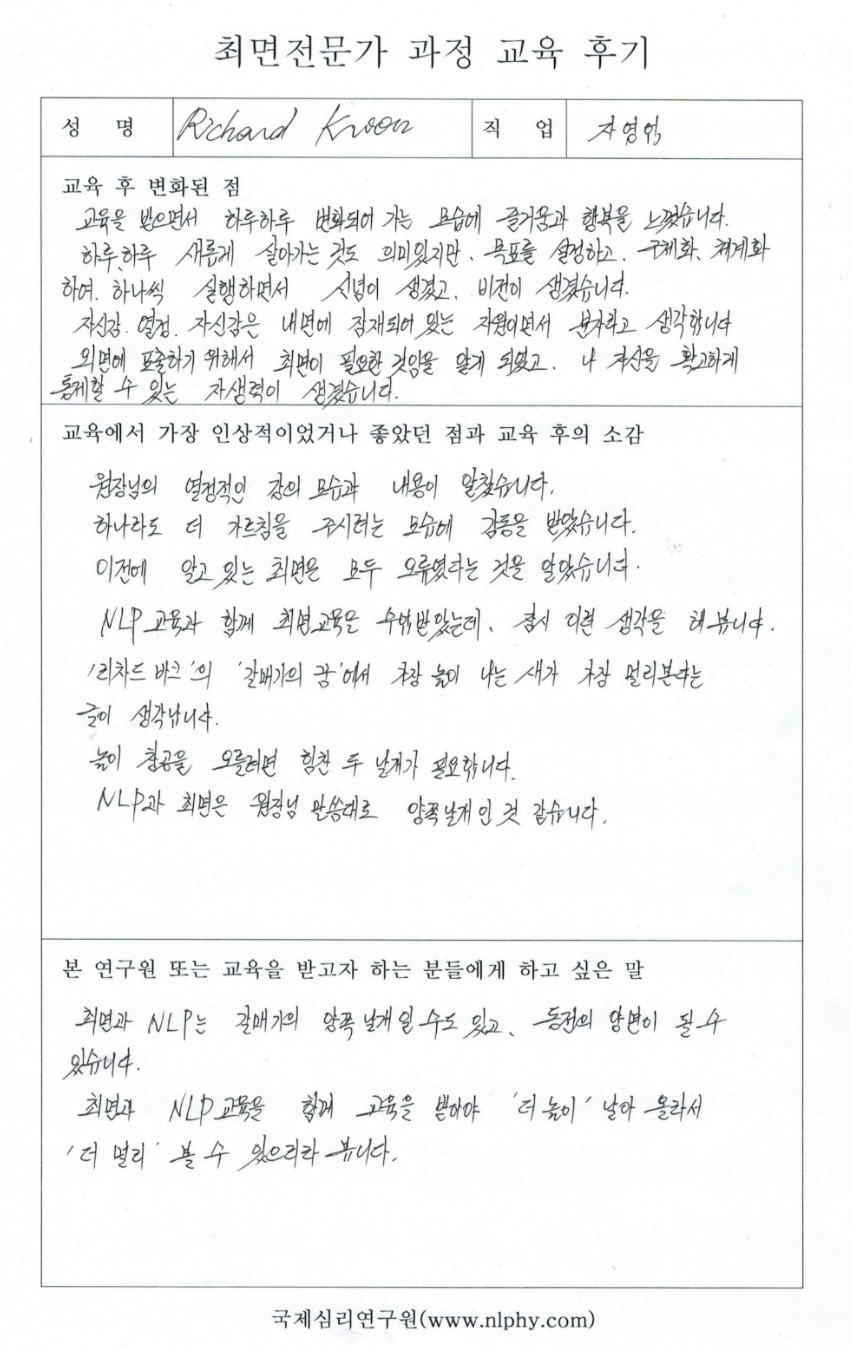 최면전문가 과정 교육 후기
성 명 Richard Kwon 직 업 자영업
교육 후 변화된 점
교육을 받으면서 하루하루 변화되어 가는 모습에 즐거움과 행복을 느꼈습니다.
하루, 하루 새롭게 살아가는 것도 의미있지만, 목표를 설정하고, 구체화, 체계화
하여, 하나씩 실행하면서 신념이 생겼고, 비전이 생겼습니다.
자신감, 열정, 자신감은 내면에 잠재되어 있는 자원이면서 생각합니다
외면에 표출하기 위해서 최면이 필요한 것임을 알게 되었고, 나 자신을 확고하게
통제할 수 있는 자생력이 생겼습니다.
교육에서 가장 인상적이었거나 좋았던 점과 교육 후의 소감
원장님의 열정적인 강의 모습과 내용이 알찼습니다.
하나라도 더 가르침을 주시려는 모습에 감동을 받았습니다.
이전에 알고 있는 최면은 모두 오류였다는 것을 알았습니다.
NLP 교육과 함께 최면교육은 수업받았는데, 잠시 이런 생각을 해 봅니다.
'리차드 바크'의 '갈매기의 꿈'에서 가장 높이 나는 새가 가장 멀리본다는
글이 생각납니다.
높이 창공을 오를려면 힘찬 두 날개가 필요합니다.
NLP과 최면은 원장님 말씀대로 양쪽날개 인 것 같습니다.
본 연구원 또는 교육을 받고자 하는 분들에게 하고 싶은 말
최면과 NLP는 갈매기의 양쪽 날개 일 수도 있고, 동전의 양면이 될 수
있습니다.
최면과 NLP 교육을 함께 교육을 받아야 '더 높이' 날아 올라서
'더 멀리' 볼 수 있으리라 봅니다.
국제심리연구원(www.nlphy.com)